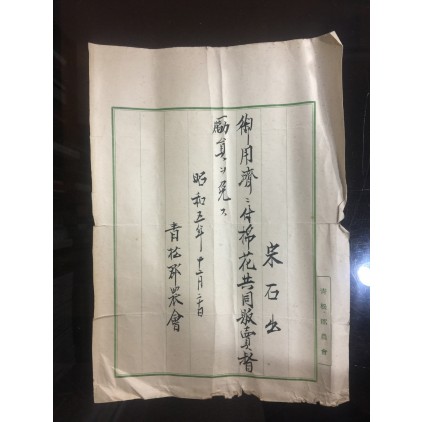 青松郡農會
宋石出
御用濟ニ付棉花共同販賣督
勵員ヲ免ス
昭和五年十二月二十日
青松郡農會